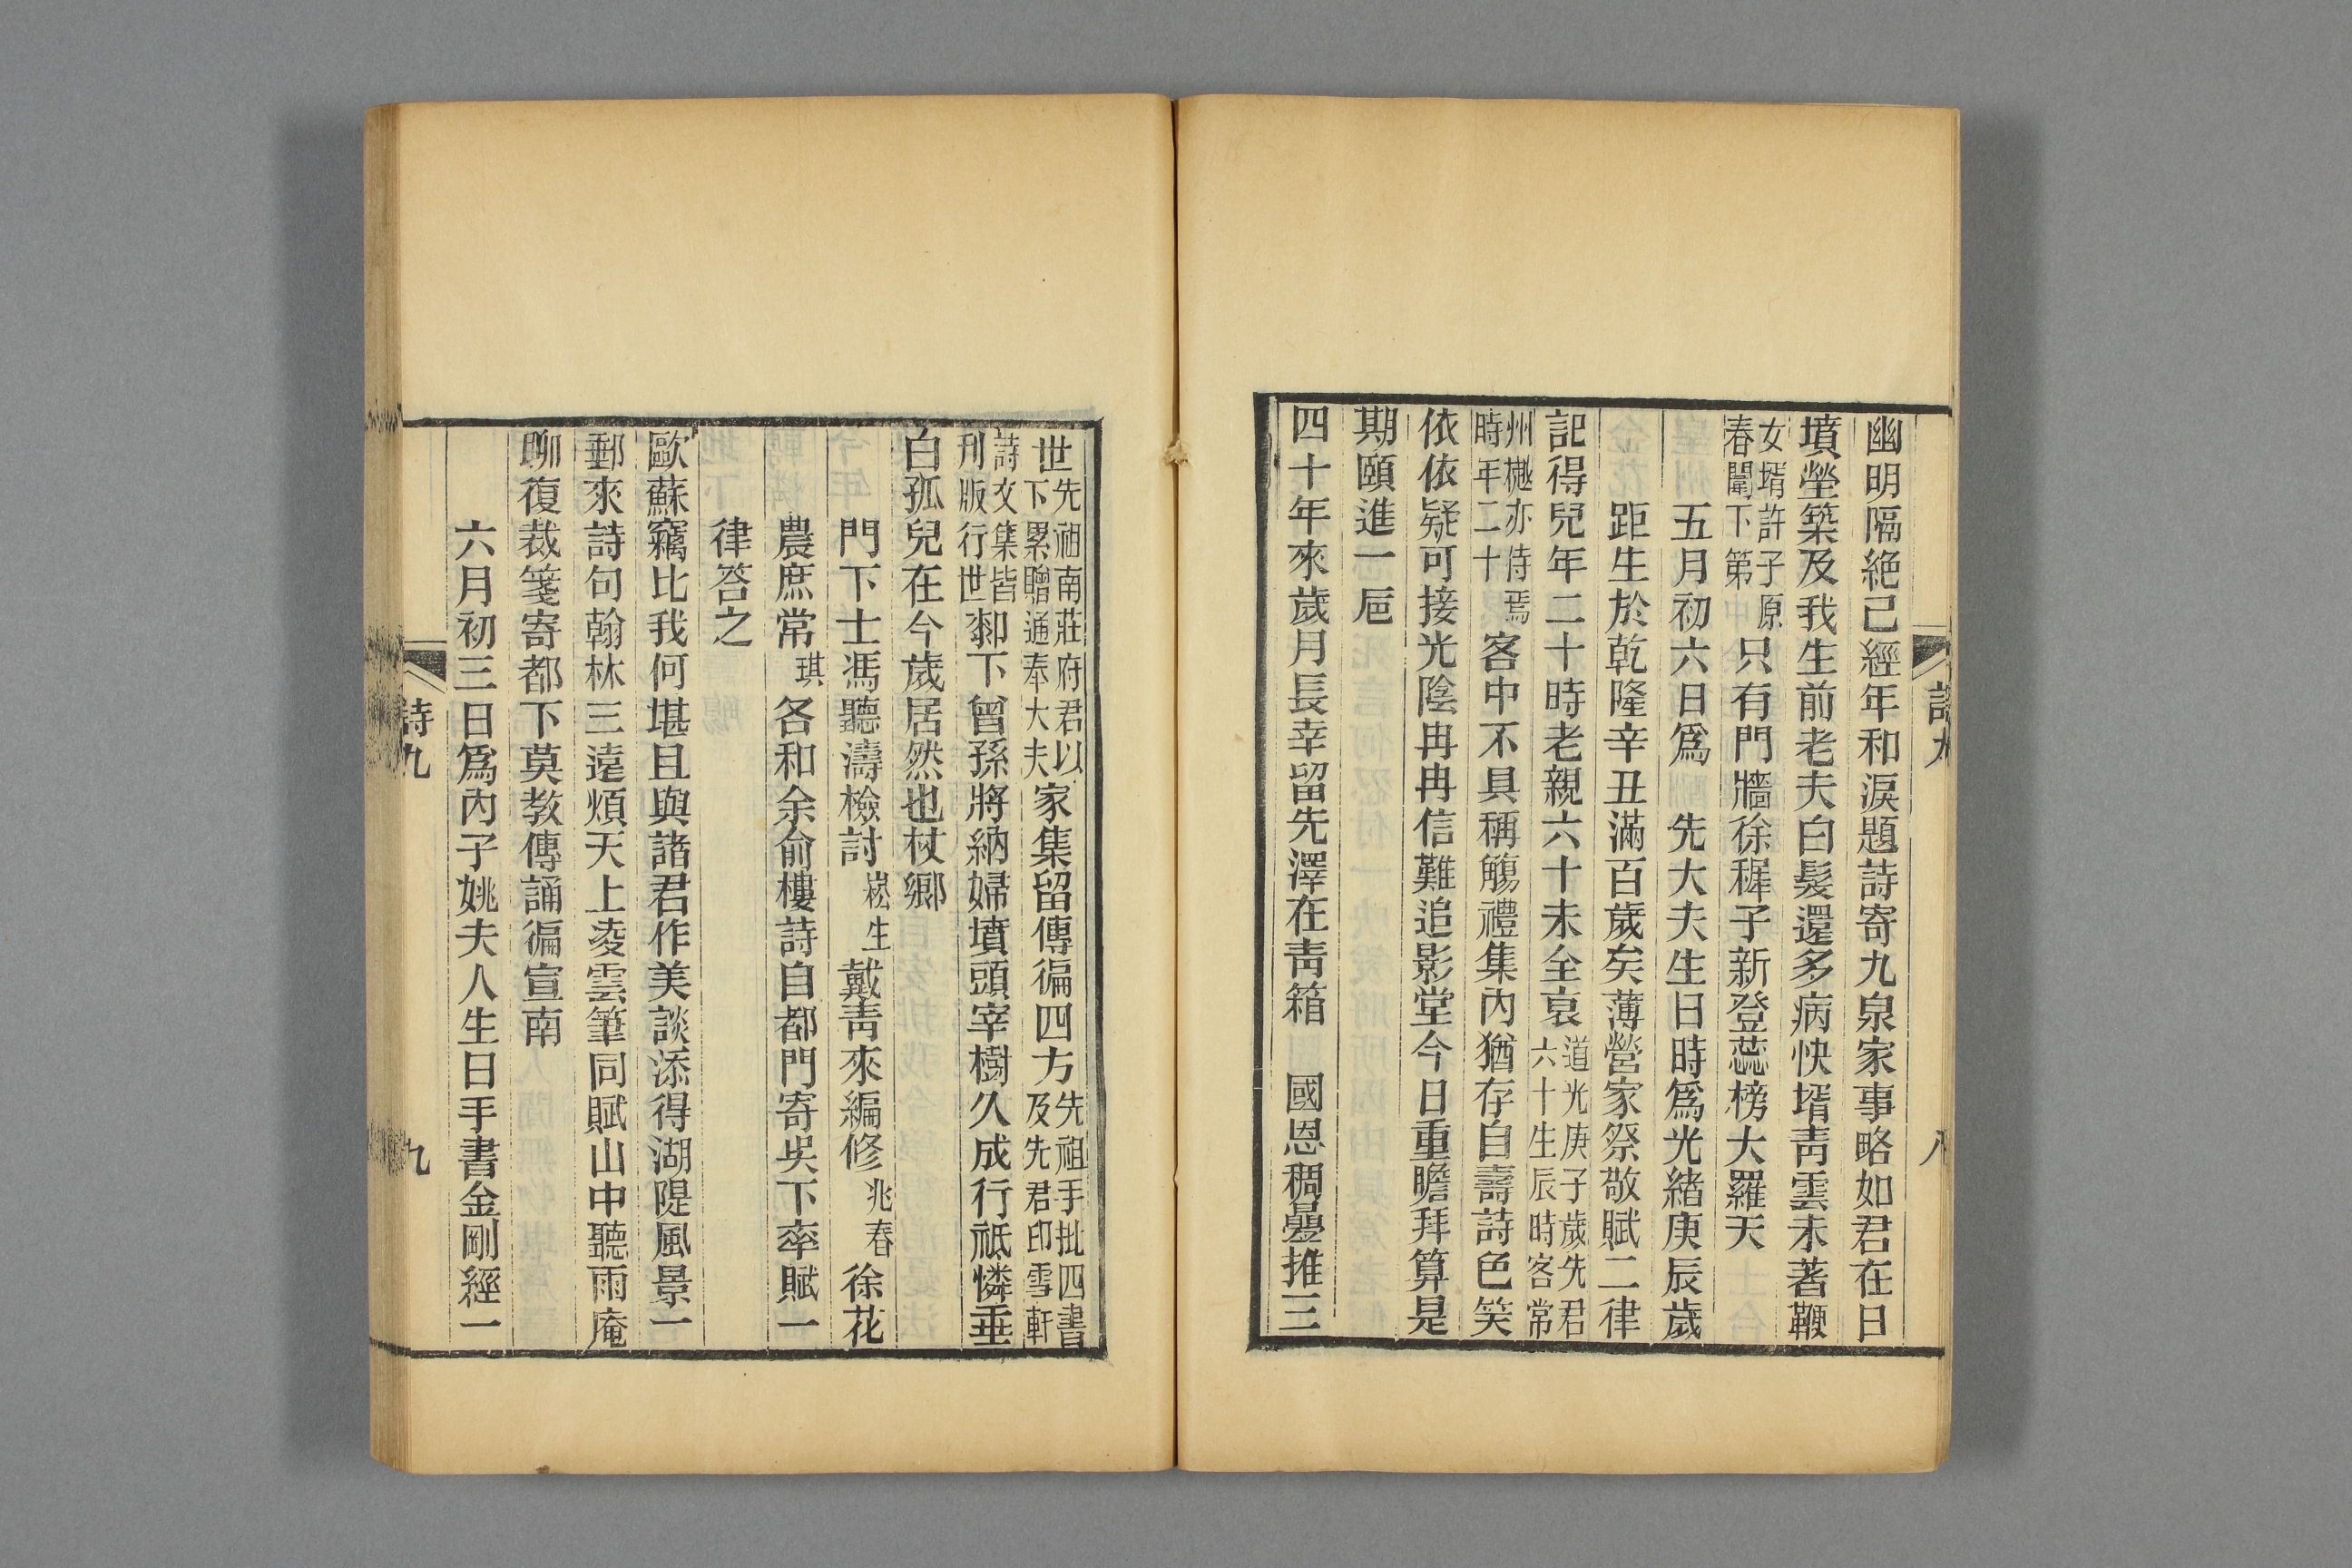 詩九
八
幽明隔絶已經年和淚題詩寄九泉家事略如君在日
墳塋築及我生前老夫白髮還多病快壻靑雲未著鞭
女壻許子原
春闈下第
只有門牆徐穉子新登蕊榜大羅天
五月初六日爲 先大夫生日時爲光緖庚辰歲
距生於乾隆辛丑滿百歲矣薄營家祭敬賦二律
記得兒年二十時老親六十未全衰
道光庚子歲先君
六十生辰時客常
州樾亦侍焉
時年二十
客中不具稱觴禮集內猶存自壽詩色笑
依依疑可接光陰冉冉信難追影堂今日重瞻拜算是
期頤進一卮
四十年來歲月長幸留先澤在靑箱 國恩稠曡推三
世
先祖南莊府君以
下累贈通奉大夫
家集留傳徧四方
先祖手批四書
及先君印雪軒
詩文集皆
刋版行世
郄下曾孫將納婦墳頭宰樹久成行祗憐垂
白孤兒在今歲居然也杖鄉
門下士馮聽濤檢討
崧生
戴靑來編修
兆春
徐花
農庶常
琪
各和余俞樓詩自都門寄吳下率賦一
律答之
歐蘇竊比我何堪且與諸君作美談添得湖隄風景一
郵來詩句翰林三遠煩天上凌雲筆同賦山中聽雨庵
聊復裁箋寄都下莫敎傳誦徧宣南
六月初三日爲內子姚夫人生日手書金剛經一
詩九
九